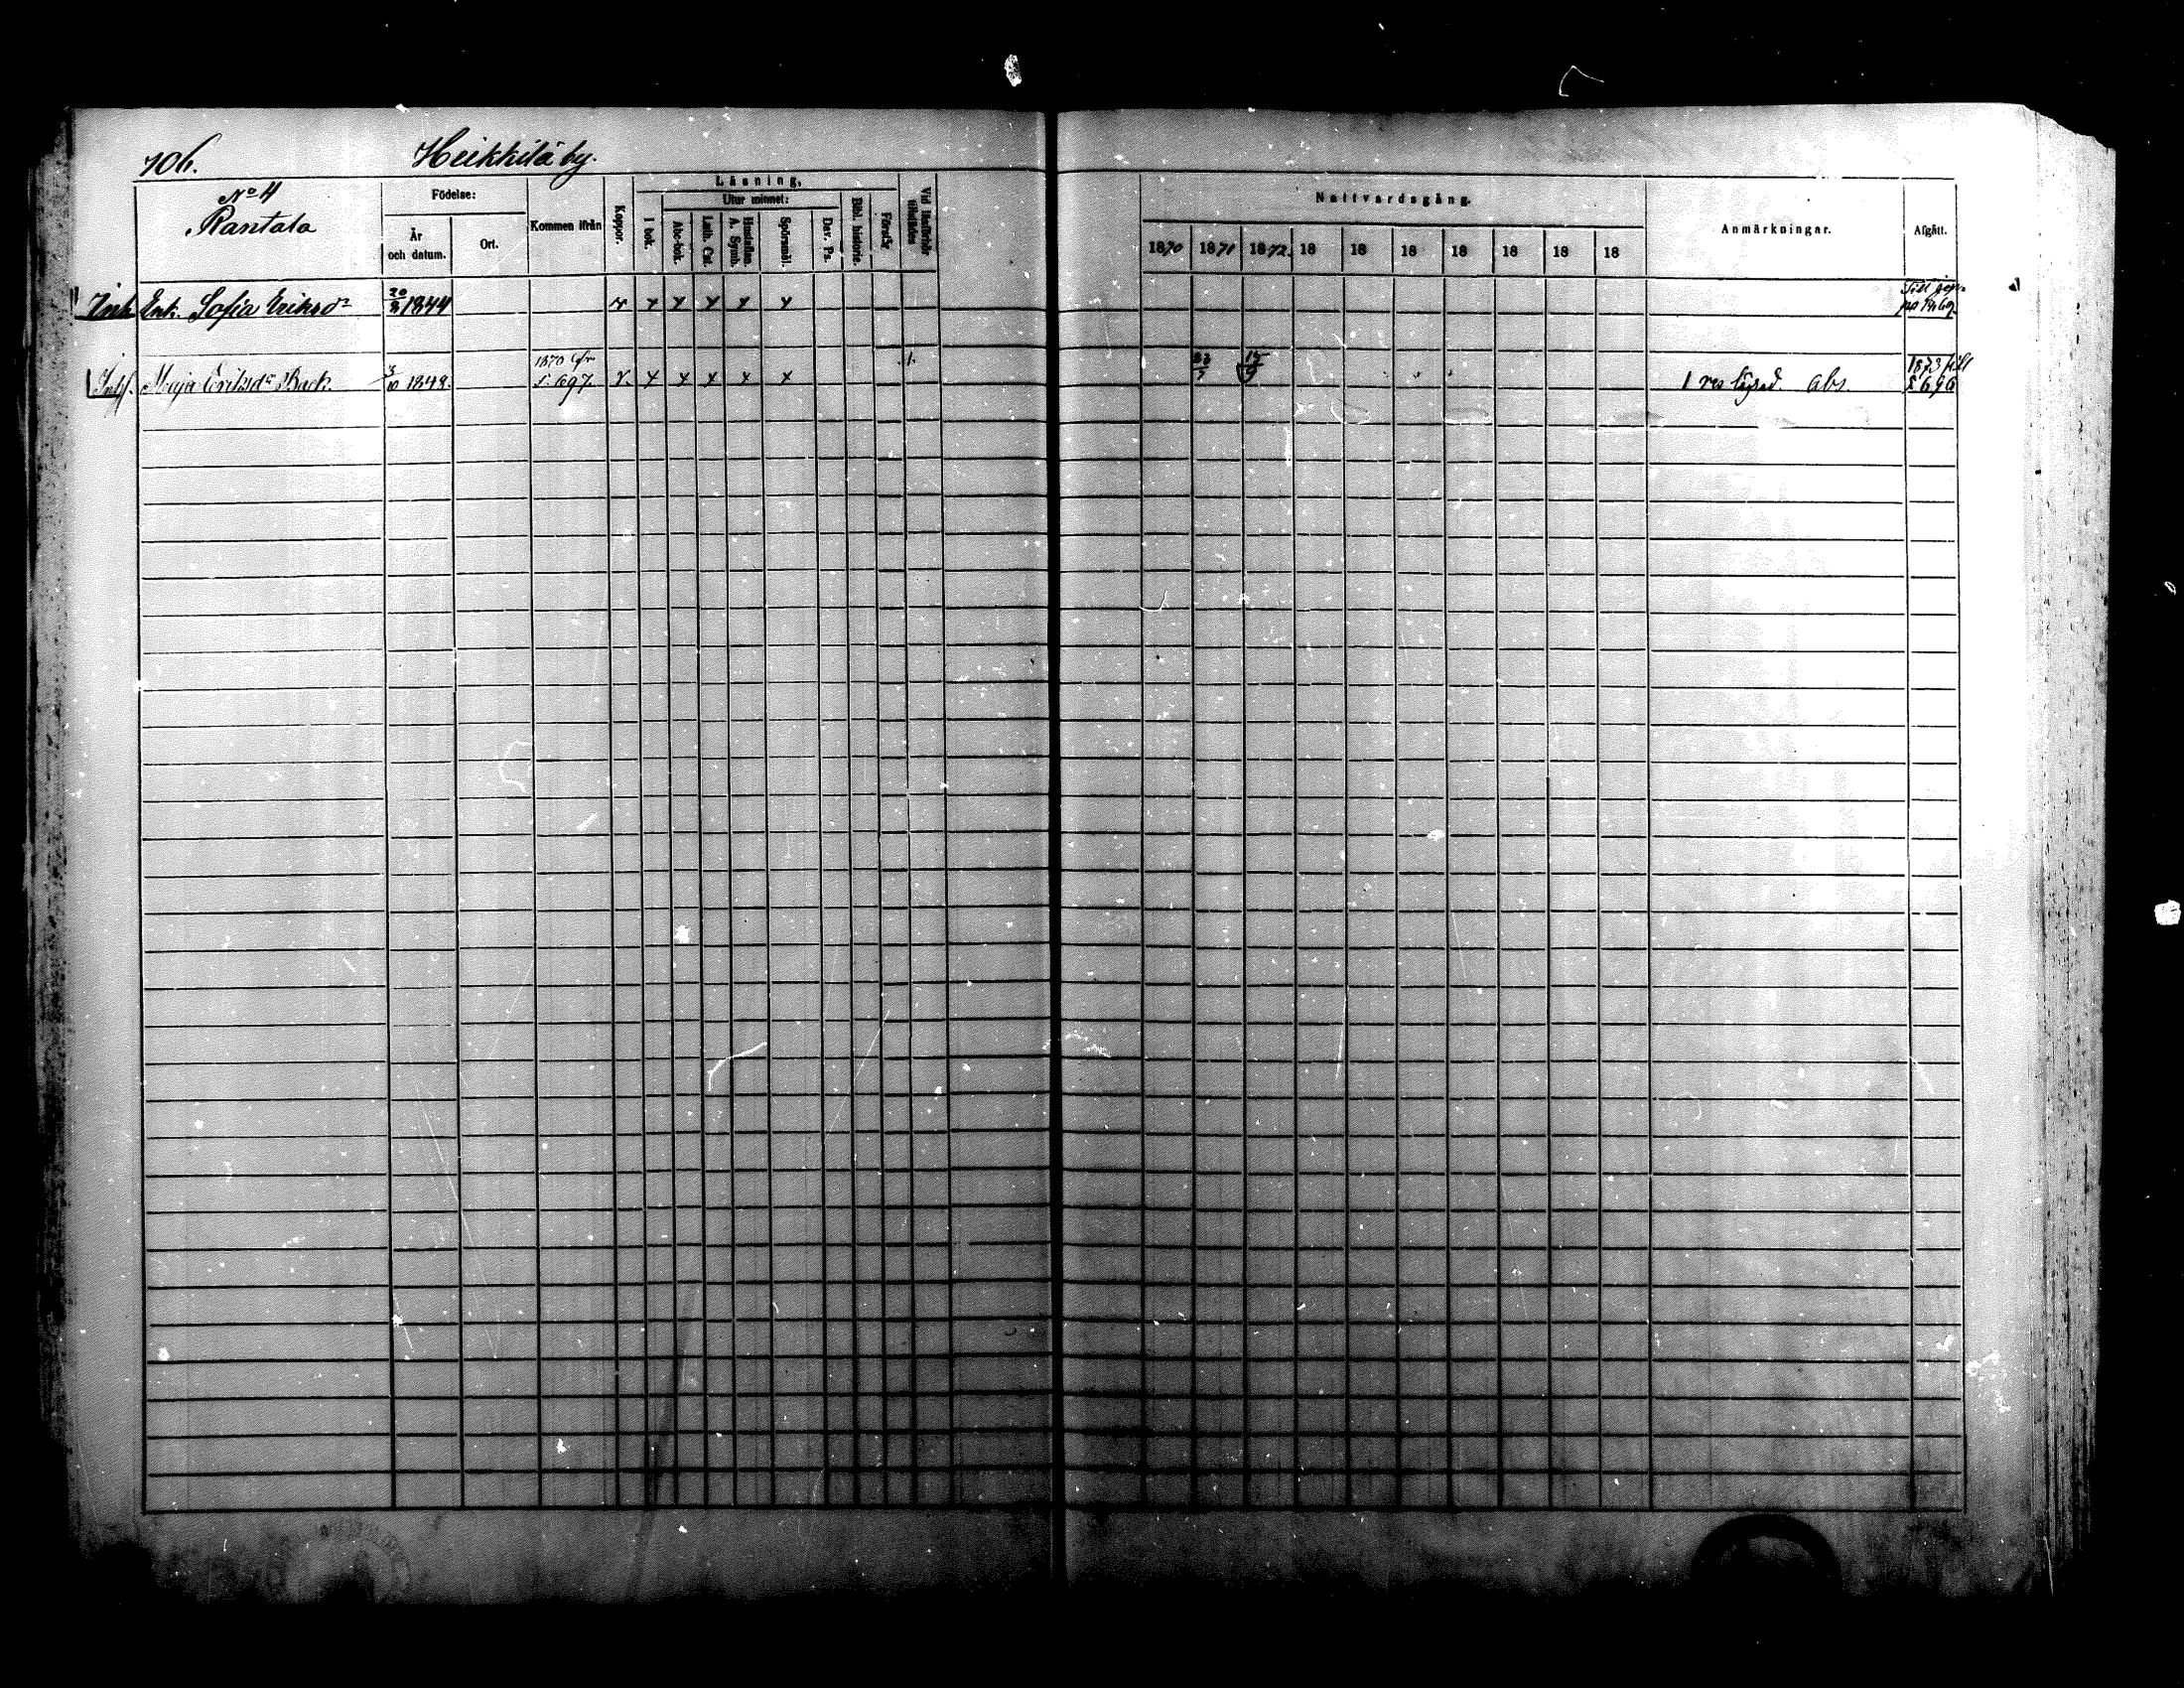 706. Heikkilä by.
No 4
Rantala
Födelse:
År och datum.
Ort.
Kommen ifrån
Koppor.
Läsning,
I bok.
Utur minnet:
Abc-bok.
Luth. Cat.
Hustaflan A. Symb.
Spörsmål.
Dav. Ps.
Bibl. historie.
Förstår
Vid läsförhör tillstädes
Nattvardsgång.
1870 1871 1872. 18 18 18 18 18 18 18
Anmärkningar.
Afgått.
Inh. Enk. Sofia Eriksdr 20/8 1844 v x x x x x
Maja Eriksdr Back 3/10 1848. 1870 fr S. 697. v. x x x x x 1. 23/7 1 res lägrad. abs. 1873 till S 696